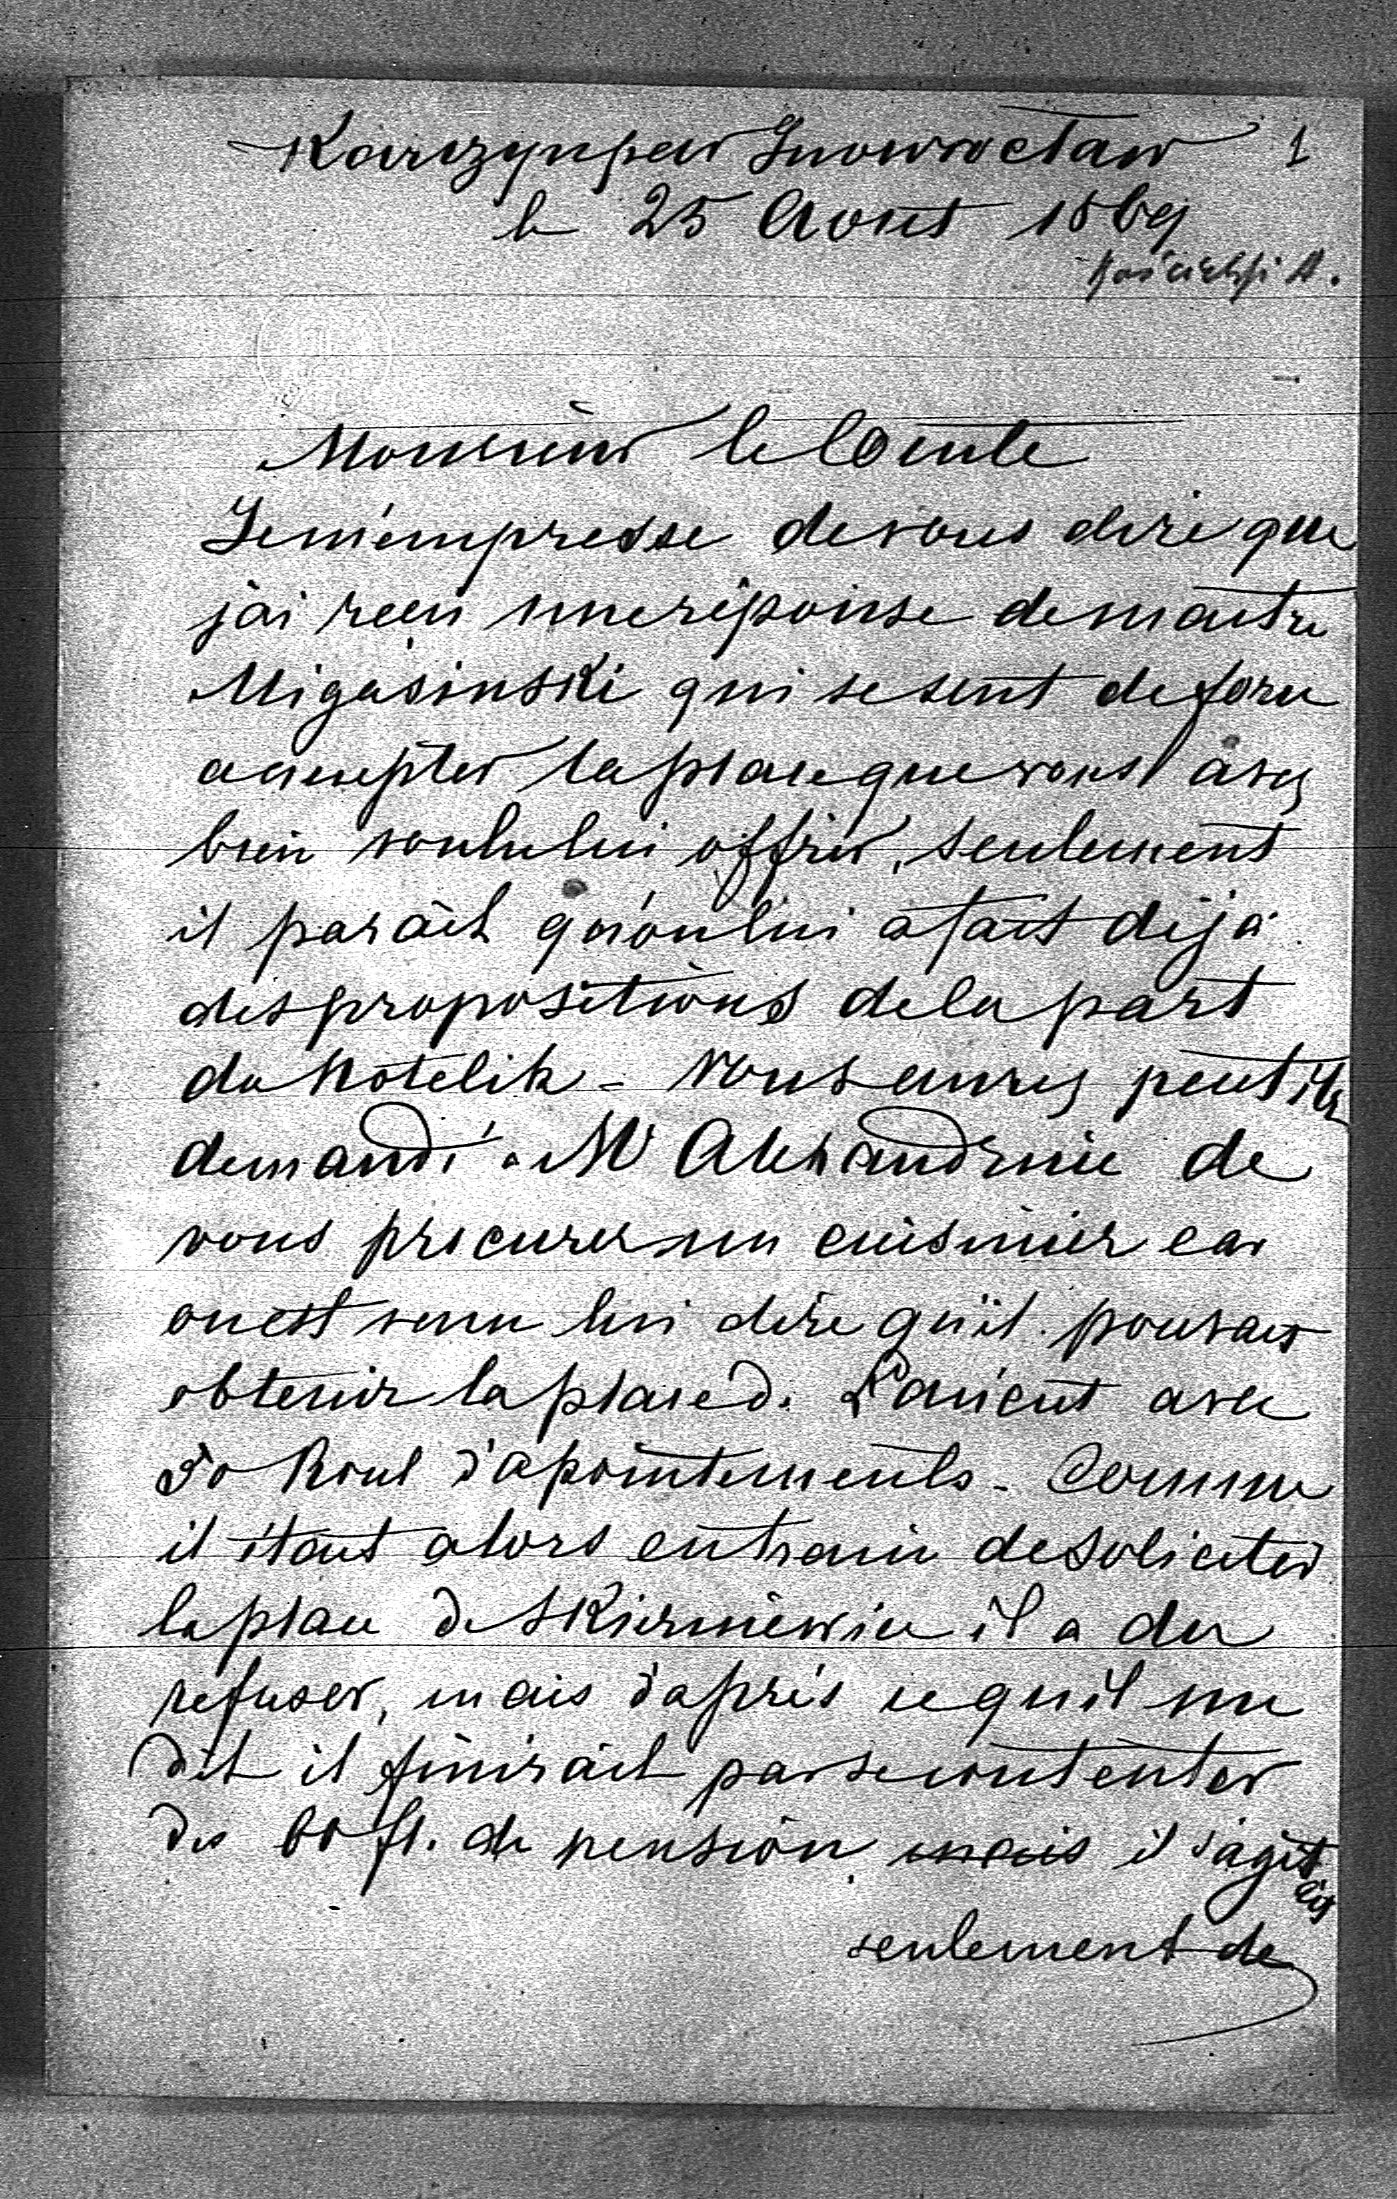 Karczyn par Inowrocław 1
le 25 Aout 1869
Kościelski A.
Monsieur le Comte
Je m'empresse de vous dire que
j'ai recu une réponse de maitre
Migasinski qui se sent de force
accepter la place que vous avez
bien voulu lui offrir, seulement
il parait qu'on lui a fait déjà
des propositions de la part
de Kotelik - Vous aurez peut etr
demandé a Mr Alexandrine de
vous procurer un cuisinier car
on est venu lui dire qu'il pouvait
obtenir la place d. Łańcut avec
50 Roul d'apointements - Comme
il était alors entrain de soliciter
la place de Skierniewice il a du
refuser, mais d'après ce qu'il me
dit il finirait par se contenter
des 60 fl. de pension mais il s'agit
seulement de